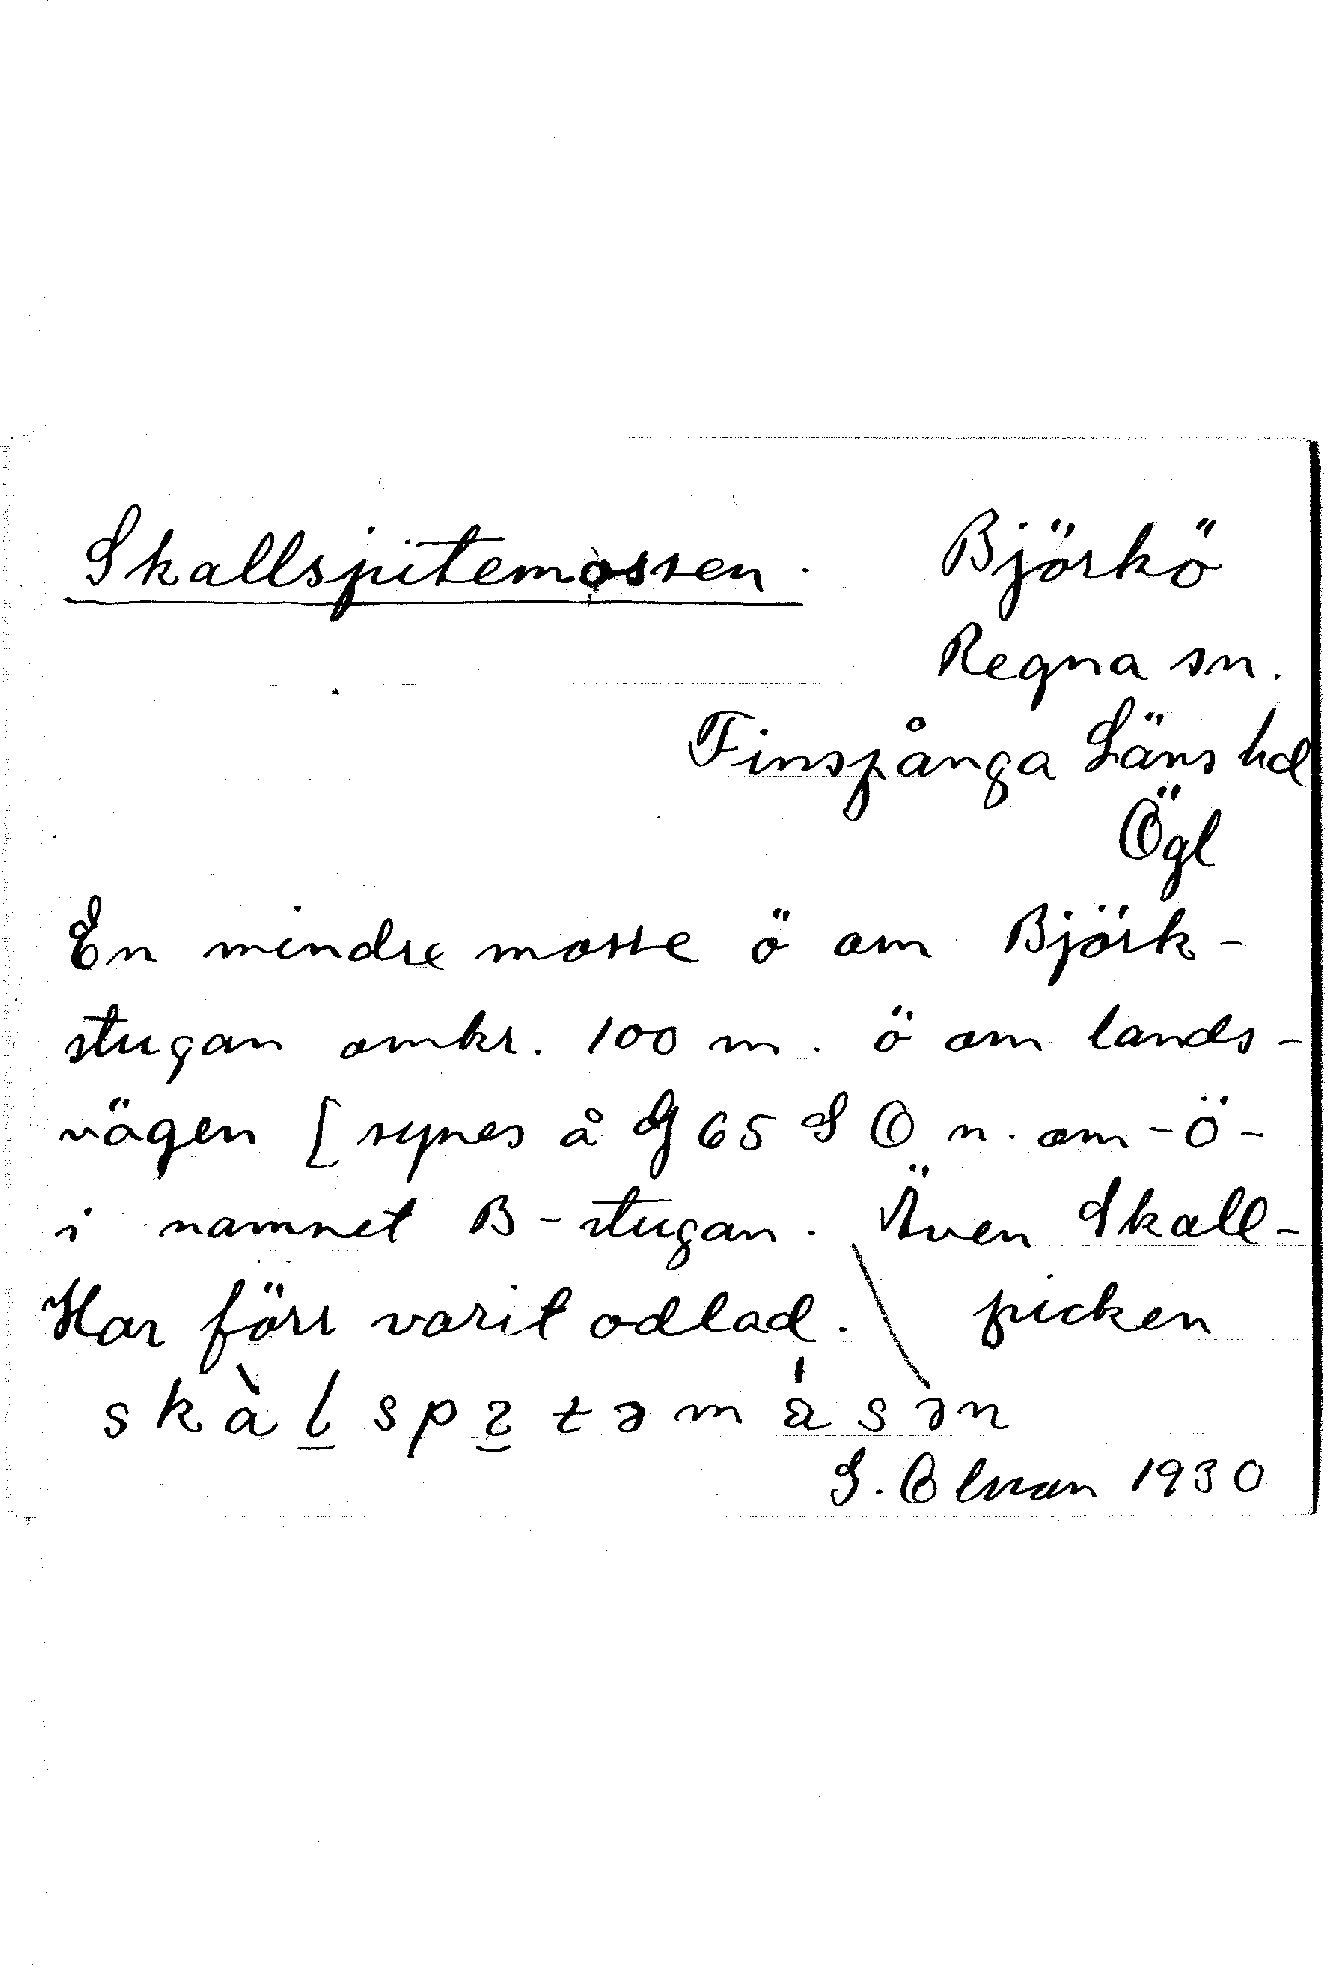 Skallspitemossen. Björkö
Regna sn.
Finspånga Läns hd
Ögl
En mindre mosse ö om Björk-
stugan omkr. 100 m. ö om lands-
vägen [synes å G 65 S O n. om -ö-
i namnet B-stugan. Även Skall-
Har förr varit odlad. picken
skàlspɩtəmåsən
G. Olson 1930